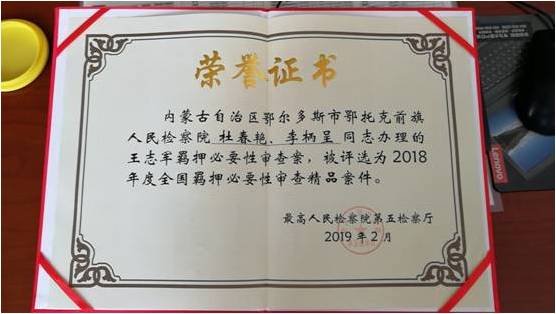 荣誉证书
内蒙古自治区鄂尔多斯市鄂托克前旗
人民检察院 杜春艳、李柄呈 同志办理的
王志军羁押必要性审查案，被评选为2018
年度全国羁押必要性审查精品案件。
最高人民检察院第五检察厅
2019年2月
Lenovo